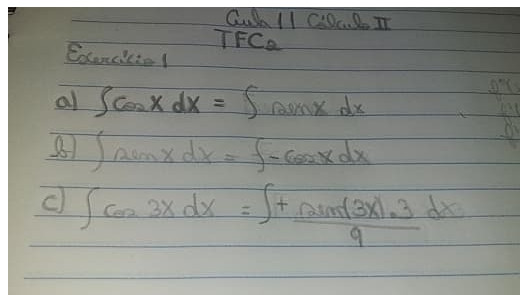 Aula 11 Cálculo II
TFC2
Exercício 1
a) ∫cos x dx = ∫ sen x dx
b) ∫ sen x dx = ∫ -cos x dx
c) ∫ cos 3x dx = ∫ + sen(3x).3 dx
9